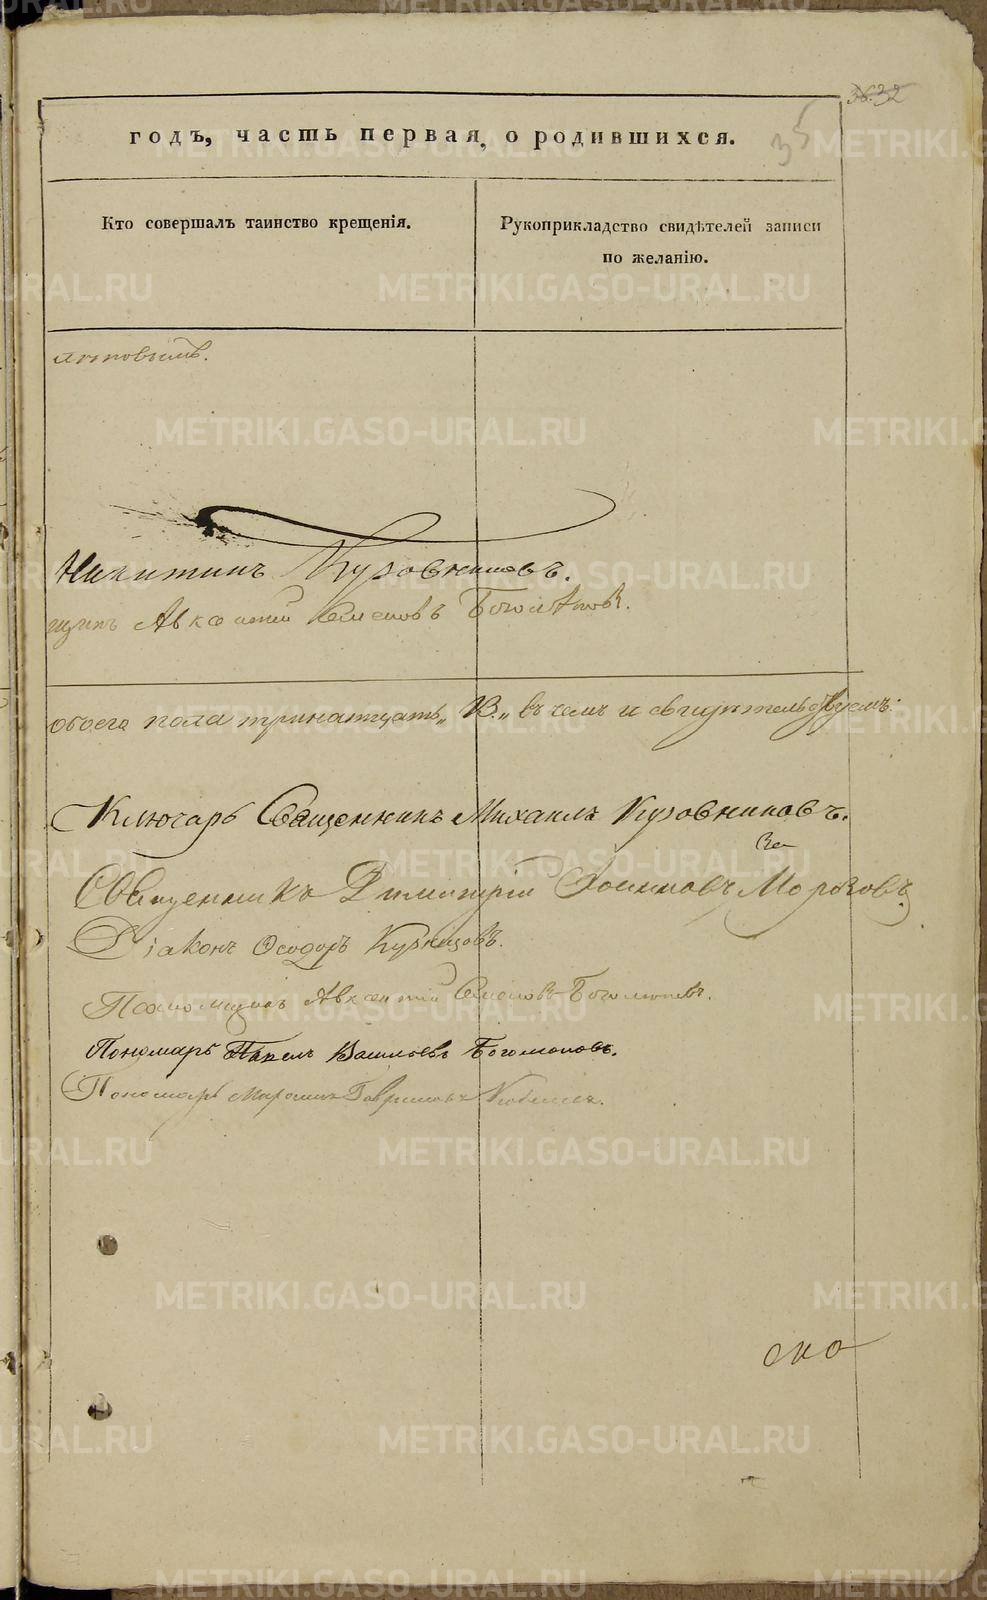 32
35
годъ, часть первая, о родившихся.
Кто совершалъ таинство крещенія.
Рукоприкладство свидѣтелей записи
по желанію.
Никитинъ Кузовниковъ.
Авксентій Семеновъ Боголѣповъ.
обоего пола тринатцать „13„ въ чемъ и свидѣтельствуемъ:
Ключарь Священникъ Михаилъ Кузовниковъ.
Священникъ Димитрій Іоакимовъ Морозовъ
Діаконъ Ѳеодоръ Кузнецовъ.
Псаломщикъ Авксентій Семеновъ Боголѣповъ.
Пономарь Павелъ Васильевъ Богомоловъ.
Пономарь Гавриловъ
METRIKI.GASO-URAL.RU